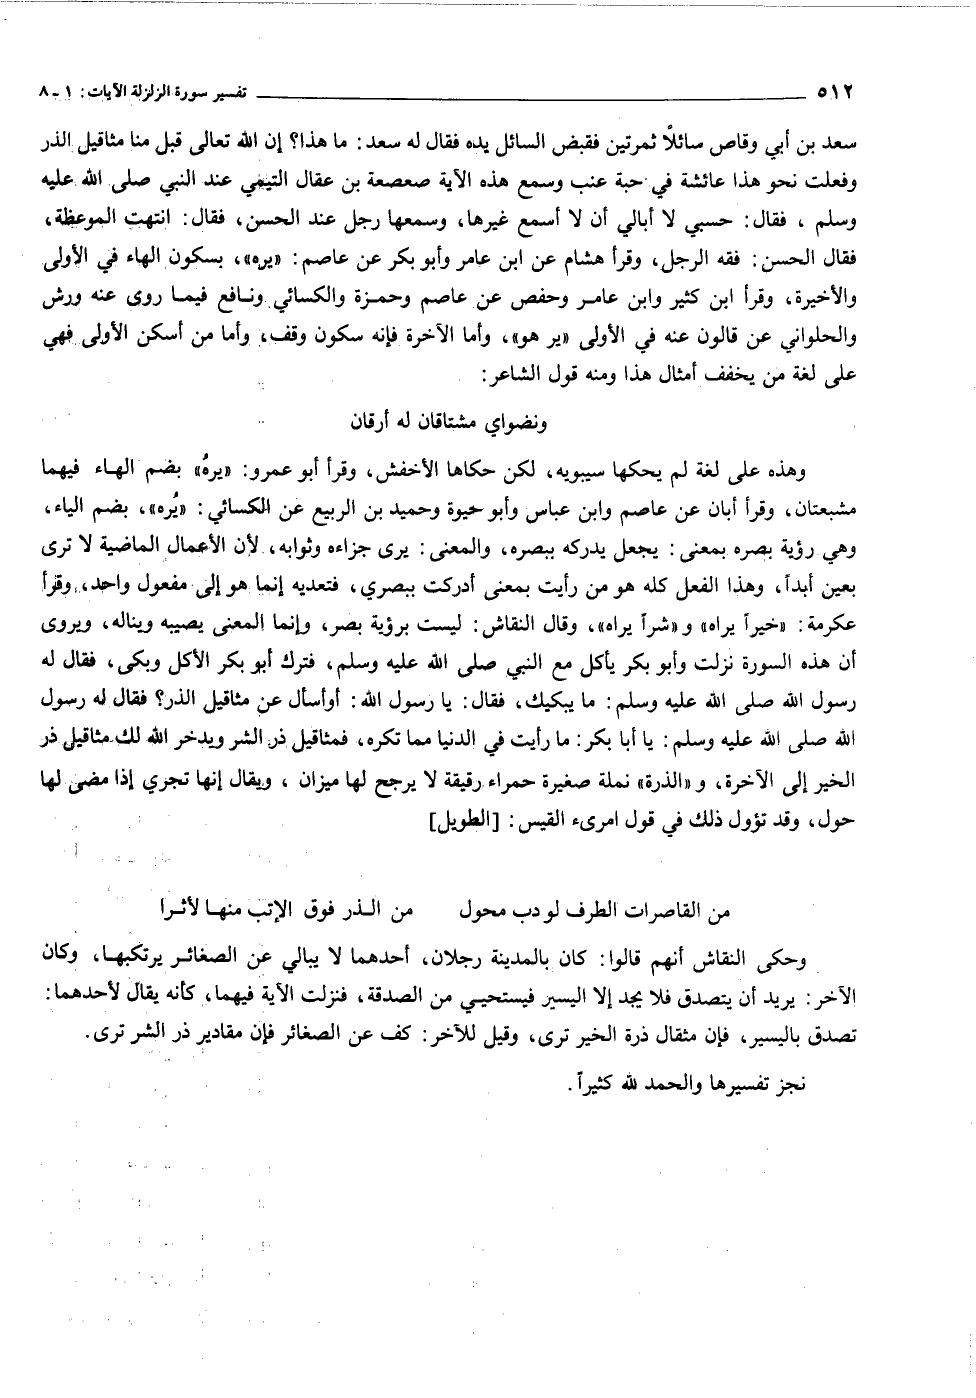 ٥١٢ ـــــــــــــــــــــــــــــــــــــــــــــــــــ تفسير سورة الزلزلة الآيات: ١ ـ ٨
سعد بن أبي وقاص سائلًا ثمرتين فقبض السائل يده فقال له سعد: ما هذا؟ إن الله تعالى قبل منا مثاقيل الذر
وفعلت نحو هذا عائشة في حبة عنب وسمع هذه الآية صعصعة بن عقال التيمي عند النبي صلى الله عليه
وسلم ، فقال: حسبي لا أبالي أن لا أسمع غيرها، وسمعها رجل عند الحسن، فقال: انتهت الموعظة،
فقال الحسن: فقه الرجل، وقرأ هشام عن ابن عامر وأبو بكر عن عاصم: «يره»، بسكون الهاء في الأولى
والأخيرة، وقرأ ابن كثير وابن عامر وحفص عن عاصم وحمزة والكسائي ونافع فيما روى عنه ورش
والحلواني عن قالون عنه في الأولى «ير هو»، وأما الآخرة فإنه سكون وقف، وأما من أسكن الأولى فهي
على لغة من يخفف أمثال هذا ومنه قول الشاعر:
ونضواي مشتاقان له أرقان
وهذه على لغة لم يحكها سيبويه، لكن حكاها الأخفش، وقرأ أبو عمرو: «يرهُ» بضم الهاء فيهما
مشبعتان، وقرأ أبان عن عاصم وابن عباس وأبو حيوة وحميد بن الربيع عن الكسائي: «يُره»، بضم الياء،
وهي رؤية بصره بمعنى: يجعل يدركه ببصره، والمعنى: يرى جزاءه وثوابه، لأن الأعمال الماضية لا ترى
بعين أبداً، وهذا الفعل كله هو من رأيت بمعنى أدركت ببصري، فتعديه إنما هو إلى مفعول واحد، وقرأ
عكرمة: «خيراً يراه» و«شراً يراه»، وقال النقاش: ليست برؤية بصر، وإنما المعنى يصيبه ويناله، ويروى
أن هذه السورة نزلت وأبو بكر يأكل مع النبي صلى الله عليه وسلم، فترك أبو بكر الأكل وبكى، فقال له
رسول الله صلى الله عليه وسلم: ما يبكيك، فقال: يا رسول الله: أوأسأل عن مثاقيل الذر؟ فقال له رسول
الله صلى الله عليه وسلم: يا أبا بكر: ما رأيت في الدنيا مما تكره، فمثاقيل ذر الشر ويدخر الله لك مثاقيل ذر
الخير إلى الآخرة، و«الذرة» نملة صغيرة حمراء رقيقة لا يرجح لها ميزان ، ويقال إنها تجري إذا مضى لها
حول، وقد تؤول ذلك في قول امرىء القيس: [الطويل]
من القاصرات الطرف لو دب محول من الذر فوق الإتب منها لأثرا
وحكى النقاش أنهم قالوا: كان بالمدينة رجلان، أحدهما لا يبالي عن الصغائر يرتكبها، وكان
الآخر: يريد أن يتصدق فلا يجد إلا اليسير فيستحيي من الصدقة، فنزلت الآية فيهما، كأنه يقال لأحدهما:
تصدق باليسير، فإن مثقال ذرة الخير ترى، وقيل للآخر: كف عن الصغائر فإن مقادير ذر الشر ترى.
نجز تفسيرها والحمد لله كثيراً.